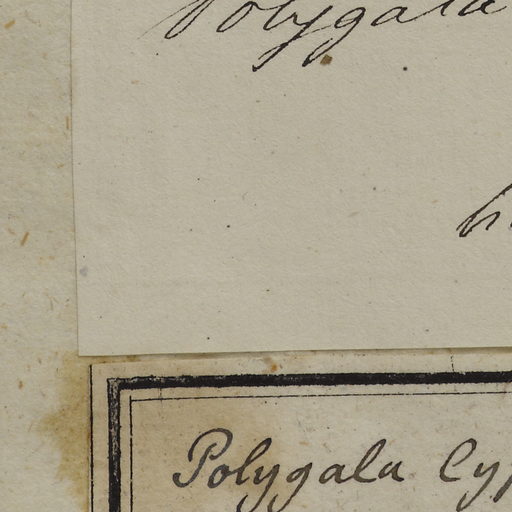 Polygala
Polygala